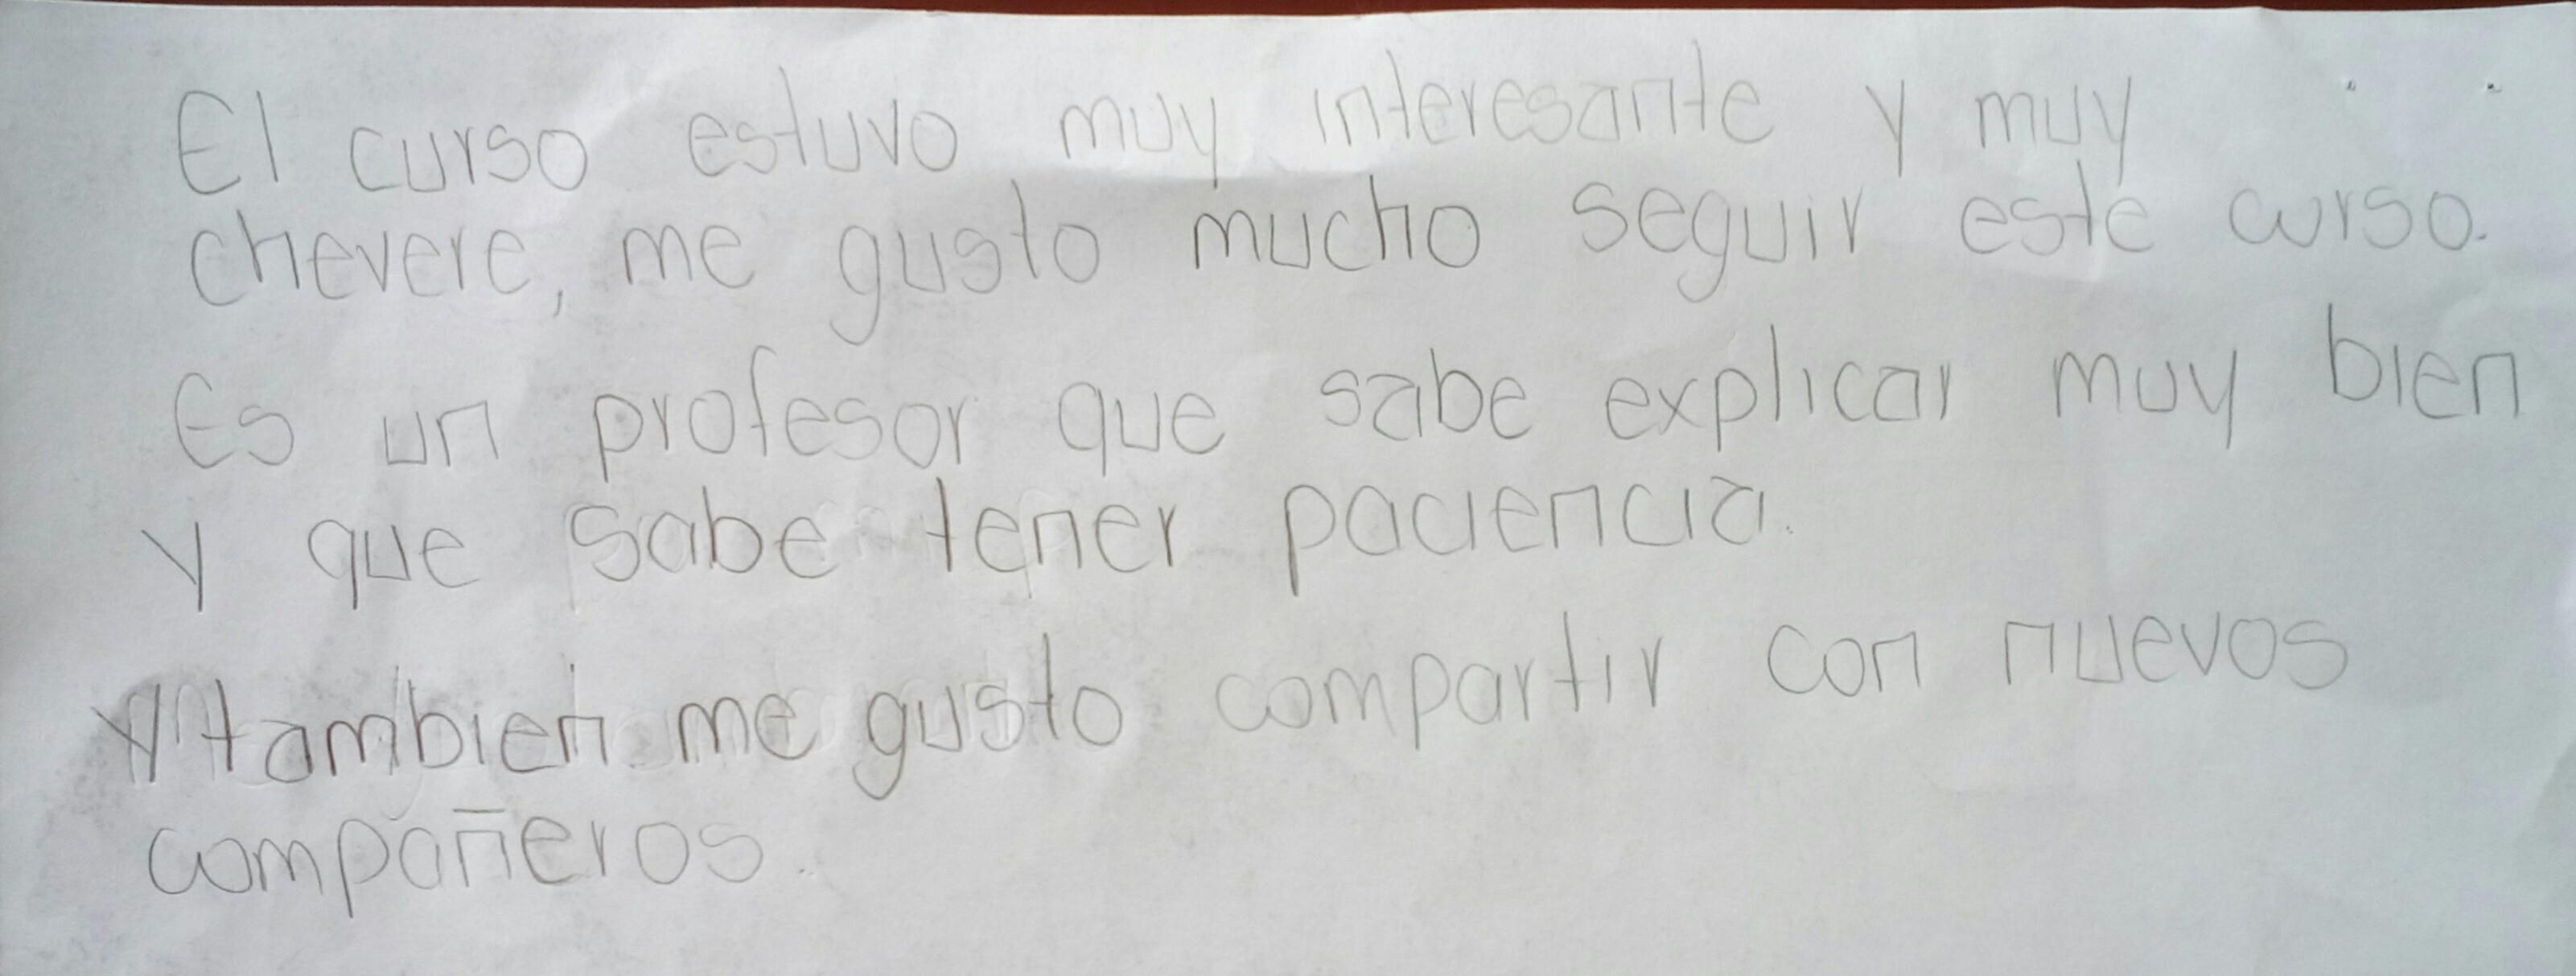 El curso estuvo muy interesante y muy
chevere, me gusto mucho seguir este curso.
Es un profesor que sabe explicar muy bien
y que sabe tener paciencia.
Y tambien me gusto compartir con nuevos
compañeros.